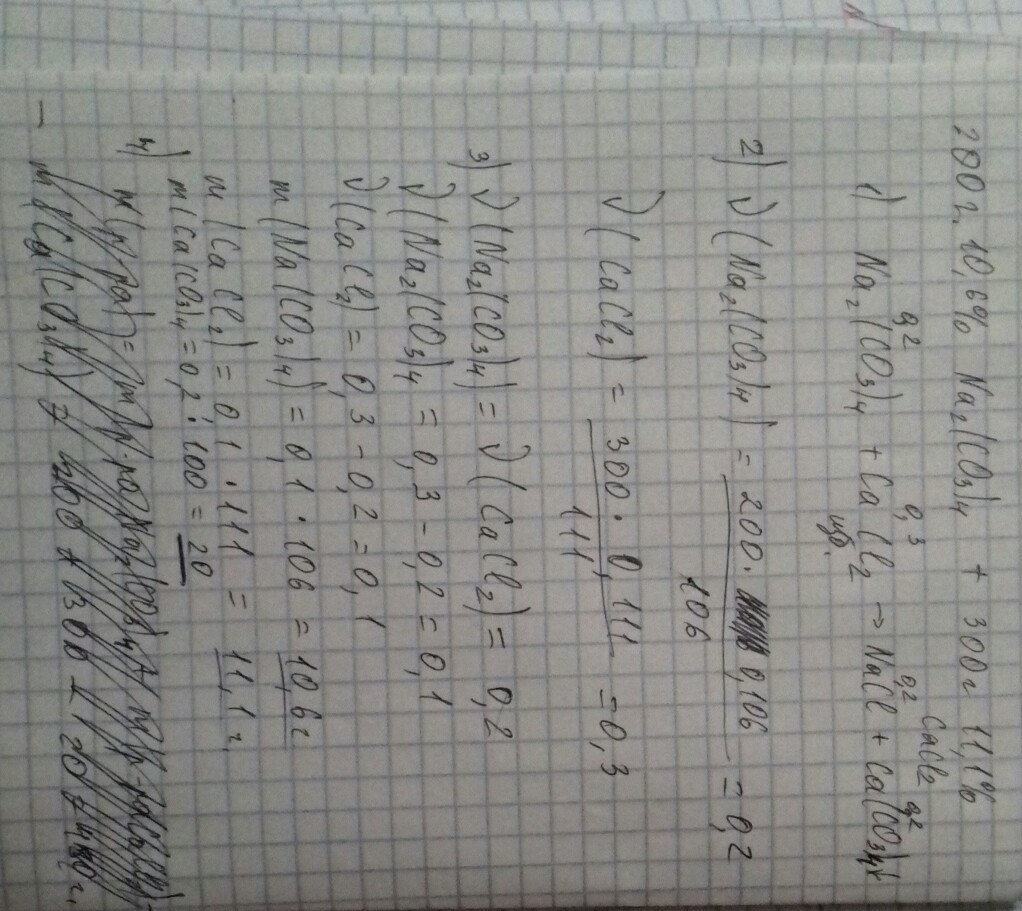 200г. 10,6% Na₂(CO₃)₄ + 300г 11,1% CaCl₂
0,2 0,3 0,2 0,2
1) Na₂(CO₃)₄ + CaCl₂ → NaCl + Ca(CO₃)₄↓
изб.
2) ν(Na₂(CO₃)₄) = 200 · 0,106 / 106 = 0,2
ν(CaCl₂) = 300 · 0,111 / 111 = 0,3
3) ν(Na₂(CO₃)₄) = ν(CaCl₂) = 0,2
ν(Na₂(CO₃)₄ = 0,3 - 0,2 = 0,1
ν(CaCl₂) = 0,3 - 0,2 = 0,1
m(Na(CO₃)₄) = 0,1 · 106 = 10,6г
m(CaCl₂) = 0,1 · 111 = 11,1г.
m(Ca(CO₃)₄ = 0,2 · 100 = 20
4)